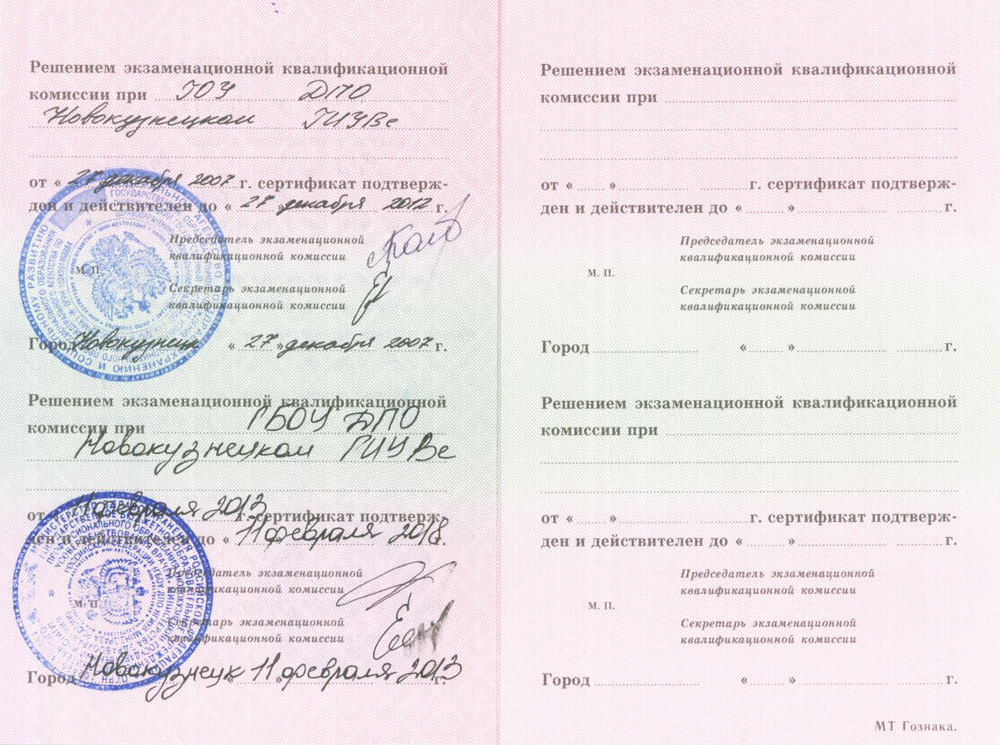 Решением экзаменационной квалификационной
комиссии при ГОУ ДПО
Новокузнецком ГИУВе
от « 27 декабря 2007 г. сертификат подтверж-
ден и действителен до « 27 декабря 2012 г.
Председатель экзаменационной
квалификационной комиссии
М. П.
Секретарь экзаменационной
квалификационной комиссии
Город Новокузнецк « 27 » декабря 2007 г.
Решением экзаменационной квалификационной
комиссии при ГБОУ ДПО
Новокузнецком ГИУВе
от « 11 февраля 2013 г. сертификат подтверж-
ден и действителен до « 11 февраля 2018
Председатель экзаменационной
квалификационной комиссии
М. П.
Секретарь экзаменационной
квалификационной комиссии
Город Новокузнецк 11 февраля 2013 г.
Решением экзаменационной квалификационной
комиссии при
от « » г. сертификат подтверж-
ден и действителен до « » г.
Председатель экзаменационной
квалификационной комиссии
М. П.
Секретарь экзаменационной
квалификационной комиссии
Город « » г.
Решением экзаменационной квалификационной
комиссии при
от « » г. сертификат подтверж-
ден и действителен до « » г.
Председатель экзаменационной
квалификационной комиссии
М. П.
Секретарь экзаменационной
квалификационной комиссии
Город « » г.
МТ Гознака.